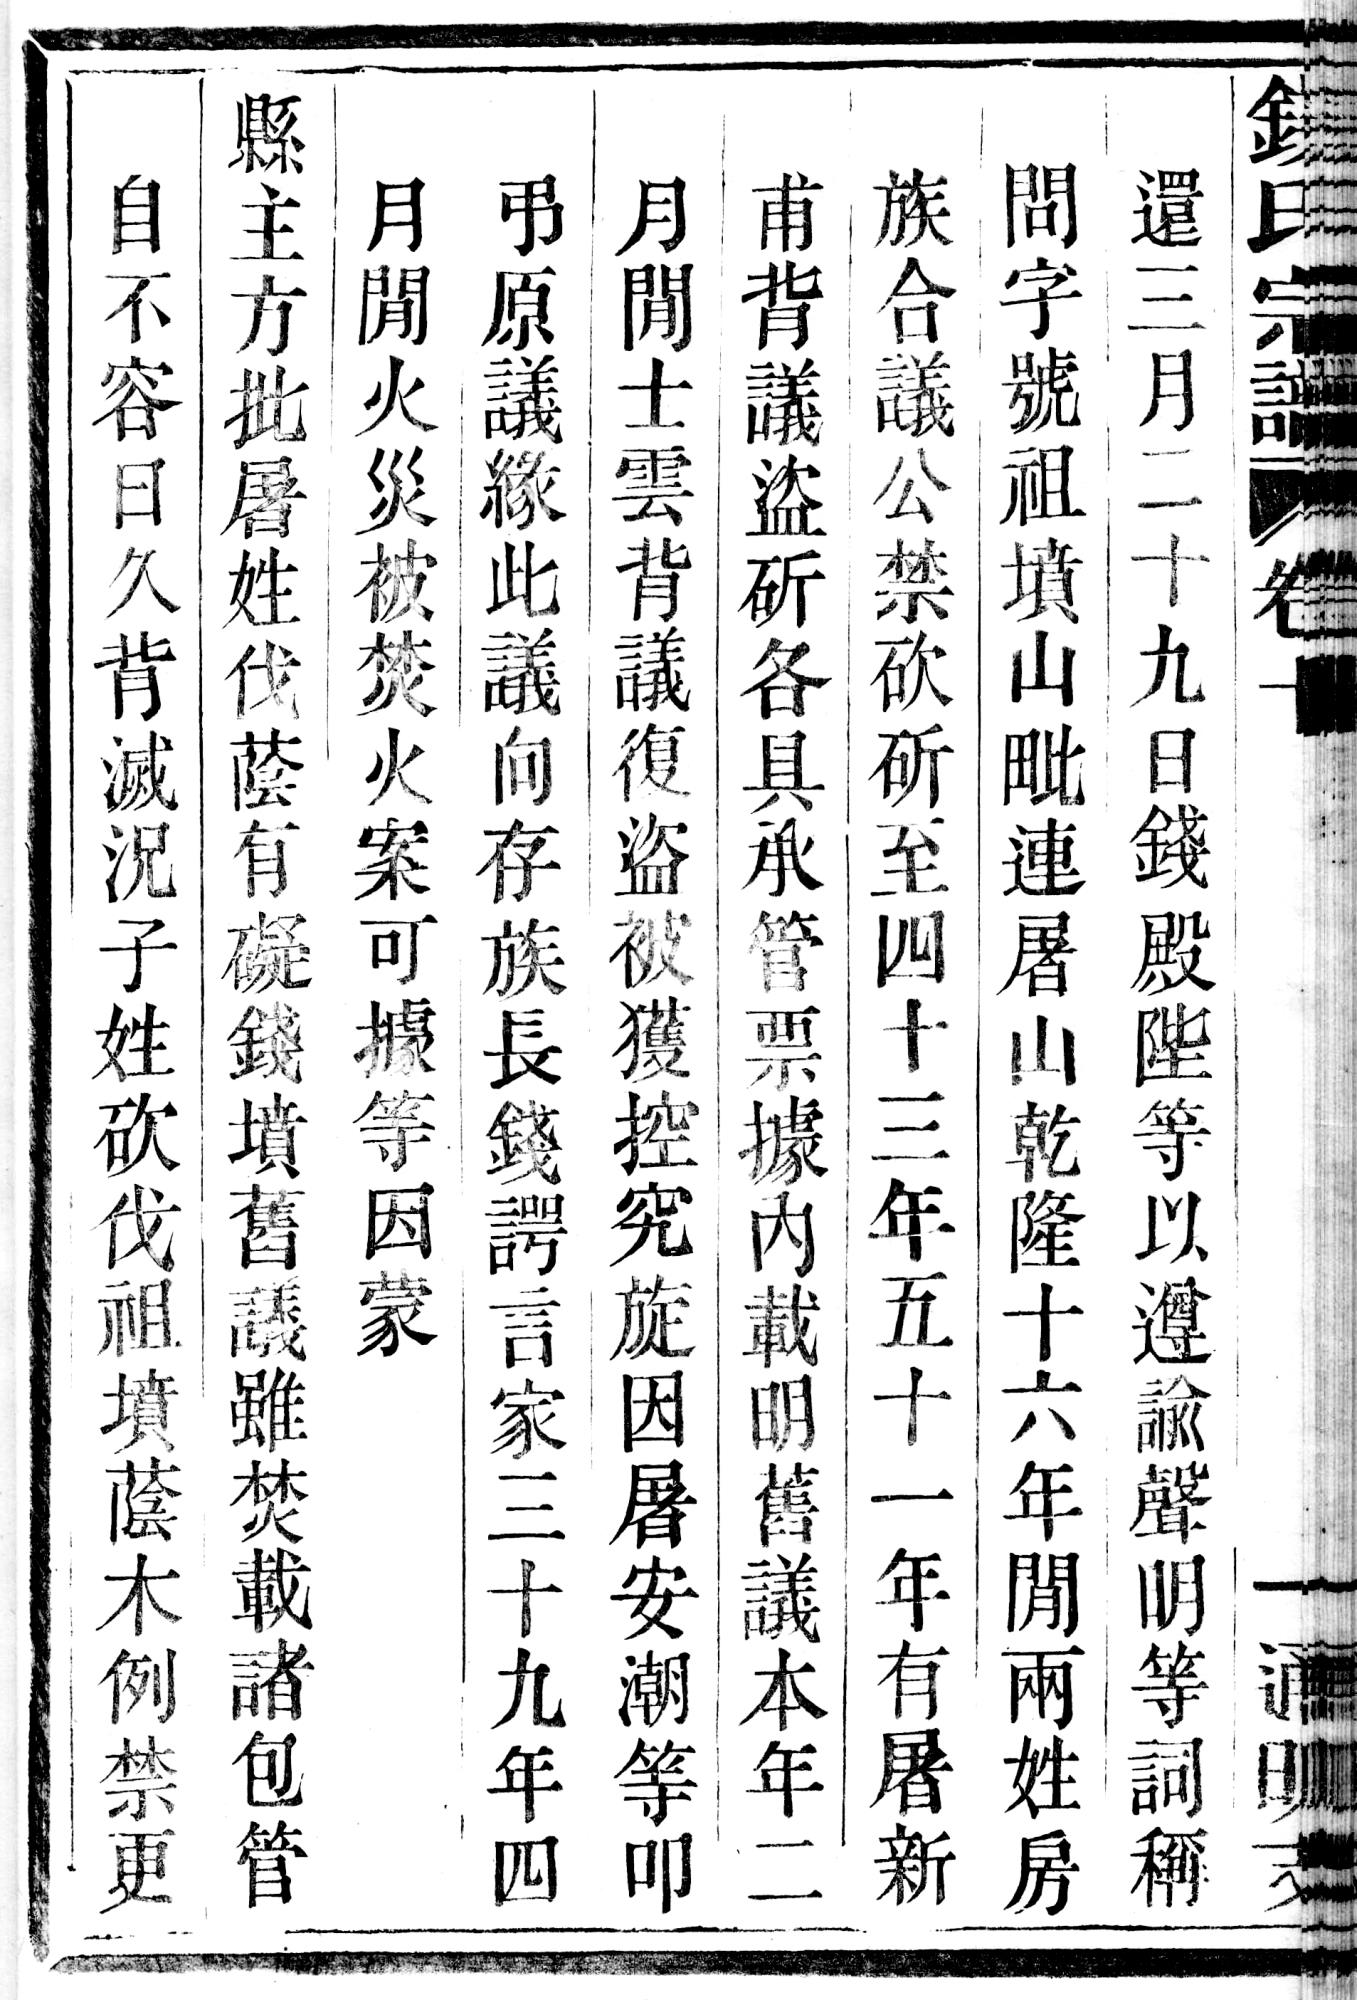 錢氏宗譜 卷十 一 通明支
還三月二十九日錢殿陛等以遵諭聲明等詞稱
問字號祖墳山毗連屠山乾隆十六年間兩姓房
族合議公禁砍斫至四十三年五十一年有屠新
甫背議盜斫各具承管票據內載明舊議本年二
月間士雲背議復盜被獲控究旋因屠安潮等叩
弔原議緣此議向存族長錢諤言家三十九年四
月間火災被焚火案可據等因蒙
縣主方批屠姓伐蔭有礙錢墳舊議雖焚載諸包管
自不容日久背滅況子姓砍伐祖墳蔭木例禁更